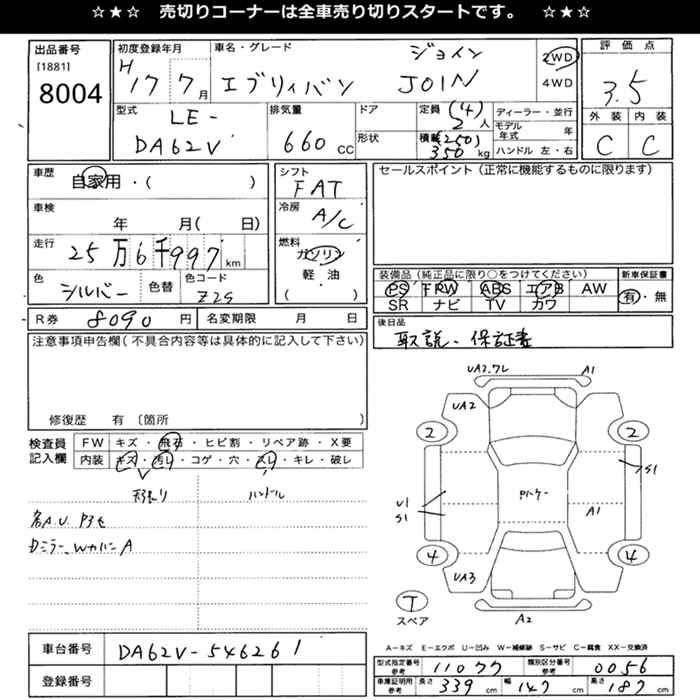 ☆★☆ 売切りコーナーは全車売り切りスタートです。 ☆★☆
出品番号
[1881]
8004
初度登録年月
H 17 7月
車名・グレード
エブリィバン ジョイン JOIN
2WD
4WD
評価点
3.5
外装 内装
C C
型式
LE-
DA62V
排気量
660 CC
ドア
形状
定員 (4)
2人
積載 (250)
350 kg
ディーラー・並行
モデル年式 年
ハンドル 左・右
車歴
自家用・( )
車検
年 月( 日)
走行
25万6千997 km
色
シルバー
色替
色コード
Z2S
シフト
FAT
冷房
A/C
燃料
ガソリン
軽・油
( )
セールスポイント(正常に機能するものに限ります)
装備品(純正品に限り○をつけてください)
PS PW ABS エアB AW
SR ナビ TV カワ
新車保証書
有・無
R券 8090 円
名変期限 月 日
後日品
取説・保証書
注意事項申告欄(不具合内容等は具体的に記入して下さい)
修復歴 有 〔箇所 〕
検査員記入欄
FW キズ・飛石・ヒビ割・リペア跡・X要
内装 キズ・汚レ・コゲ・穴・スレ・キレ・破レ
ハンドル
各A.U. P3セ
Dミラー、WカバーA
UA2.ワレ A1
UA2
2 2
U1
S1
S1
Pバーケー
A1
4 4
UA3
T
スペア
A2
A–キズ E–エクボ U–凹み W–補修跡 S–サビ C–腐食 XX–交換済
車台番号
DA62V-546261
登録番号
型式指定番号 参考 11077
類別区分番号 参考 0056
車庫証明用 参考 長さ 339 cm 幅 147 cm 高さ 187 cm